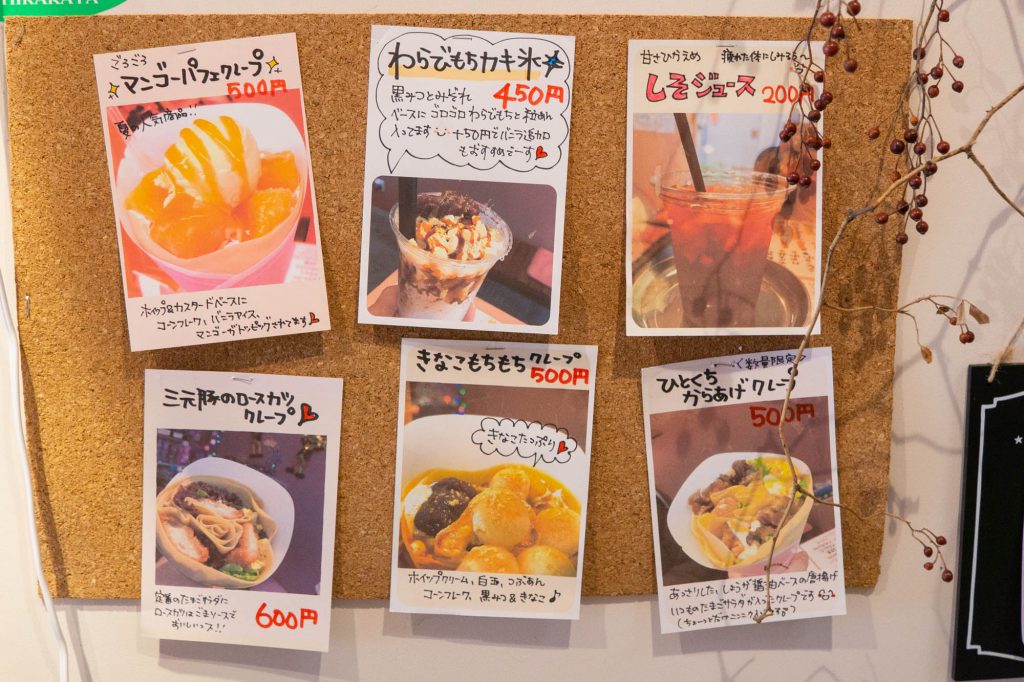 HIRAKATA
ごろごろ
マンゴーパフェクレープ
500円
夏の人気商品!!
ホイップ&カスタードベースに
コーンフレーク、バニラアイス、
マンゴーがトッピングされてます
わらびもちカキ氷
黒みつとみぞれ 450円
ベースにゴロゴロわらびもちと粒あん
入ってます +50円でバニラ追加
もおすすめでーす
甘さひかえめ 疲れた体にしみるぅ〜
しそジュース
200円
三元豚のロースカツ
クレープ
定番のたまごサラダに
ロースカツはごまソースで
おいしいっス!!
600円
きなこもちもちクレープ
500円
きなこたっぷり
ホイップクリーム、白玉、つぶあん
コーンフレーク、黒みつ&きなこ♪
数量限定
ひとくち
からあげクレープ
500円
あっさりした、しょうが醤油ベースの唐揚げ
いつものたまごサラダが入ったクレープです
(ちょーっとだけニンニク入ってます)